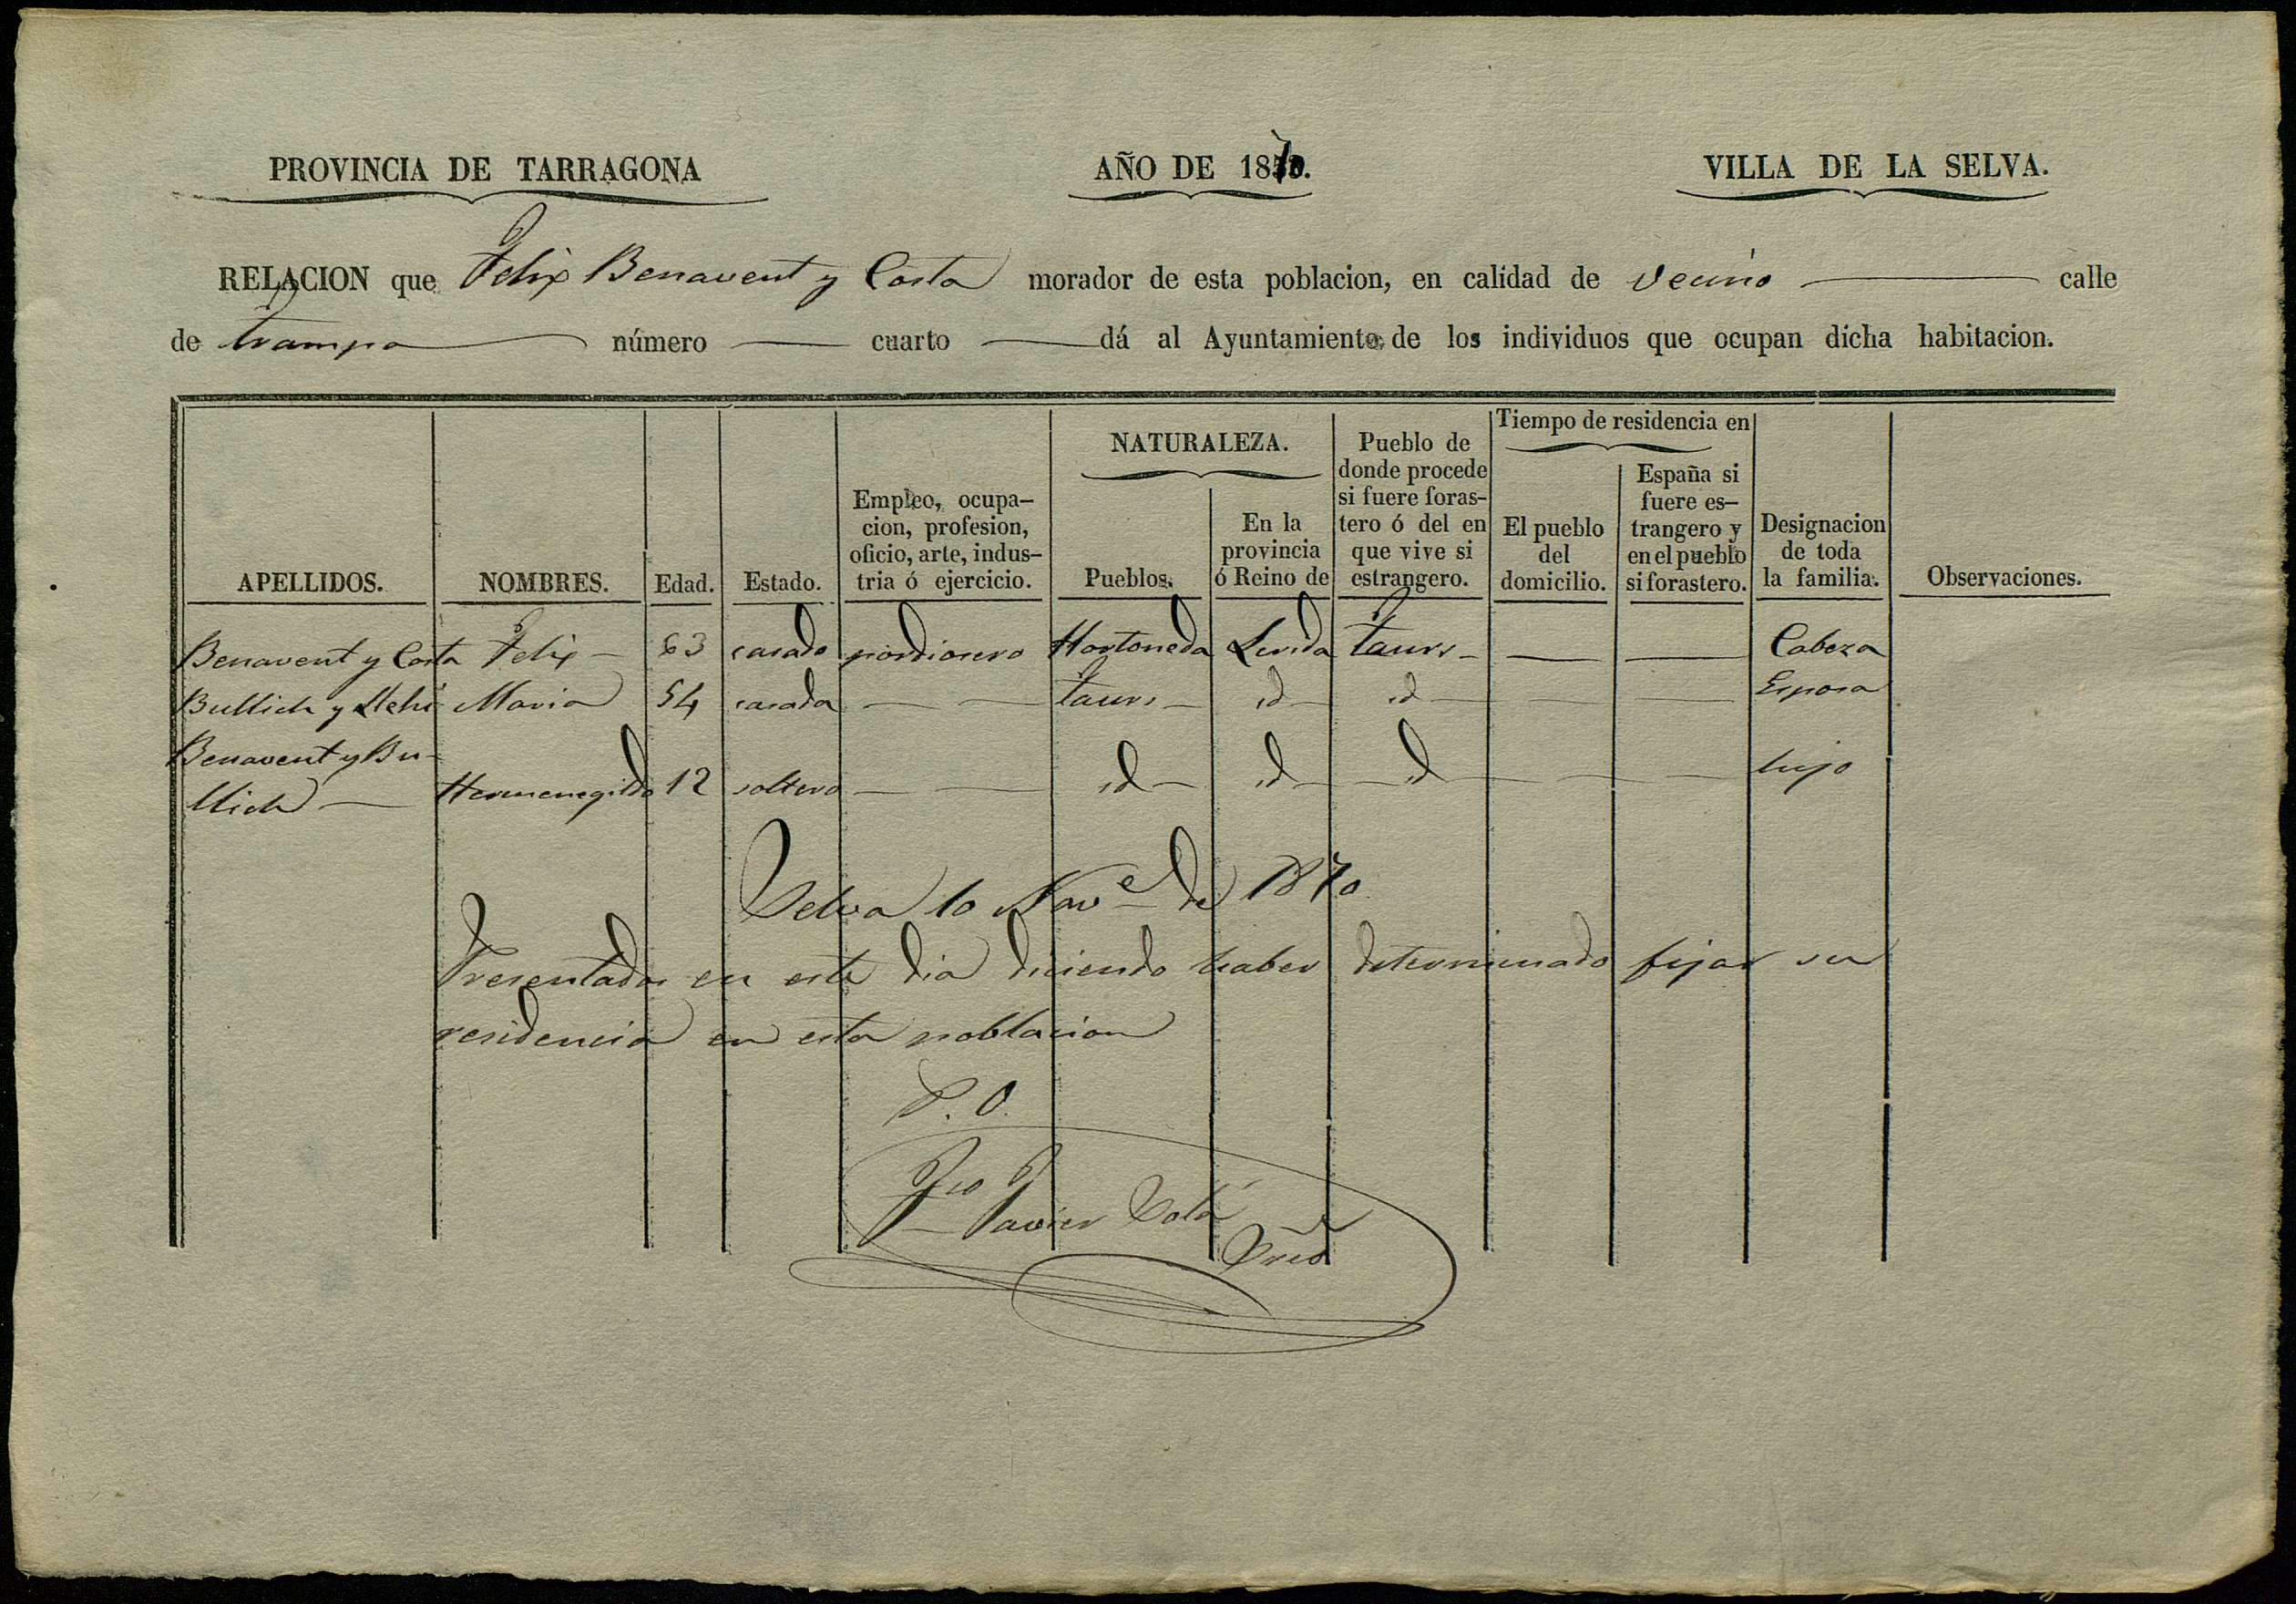 PROVINCIA DE TARRAGONA AÑO DE 1870. VILLA DE LA SELVA.
RELACION que Felix Benavent y Costa morador de esta poblacion, en calidad de vecino calle
de trampa número — cuarto — dá al Ayuntamiento de los individuos que ocupan dicha habitacion.
APELLIDOS.
NOMBRES.
Edad.
Estado.
Empleo, ocupa-
cion, profesion,
oficio, arte, indus-
tria ó ejercicio.
NATURALEZA.
Pueblos.
En la
provincia
ó Reino de
Pueblo de
donde procede
si fuere foras-
tero ó del en
que vive si
estrangero.
Tiempo de residencia en
El pueblo
del
domicilio.
España si
fuere es-
trangero y
en el pueblo
si forastero.
Designacion
de toda
la familia.
Observaciones.
Benavent y Costa Felix — 63 casado pordiosero Hortoneda Lerida Taurs — — — Cabeza
Bullich y Maria 54 casada — — Taurs — id — id — — — Esposa
Benavent y Bu-
llich — Hermenegildo 12 soltero — — id — id — id — — — hijo
Selva 10 Nov.e de 1870
Presentados en este dia diciendo haber determinado fijar su
residencia en esta poblacion
P. O.
Fco Javier Solá
Srio